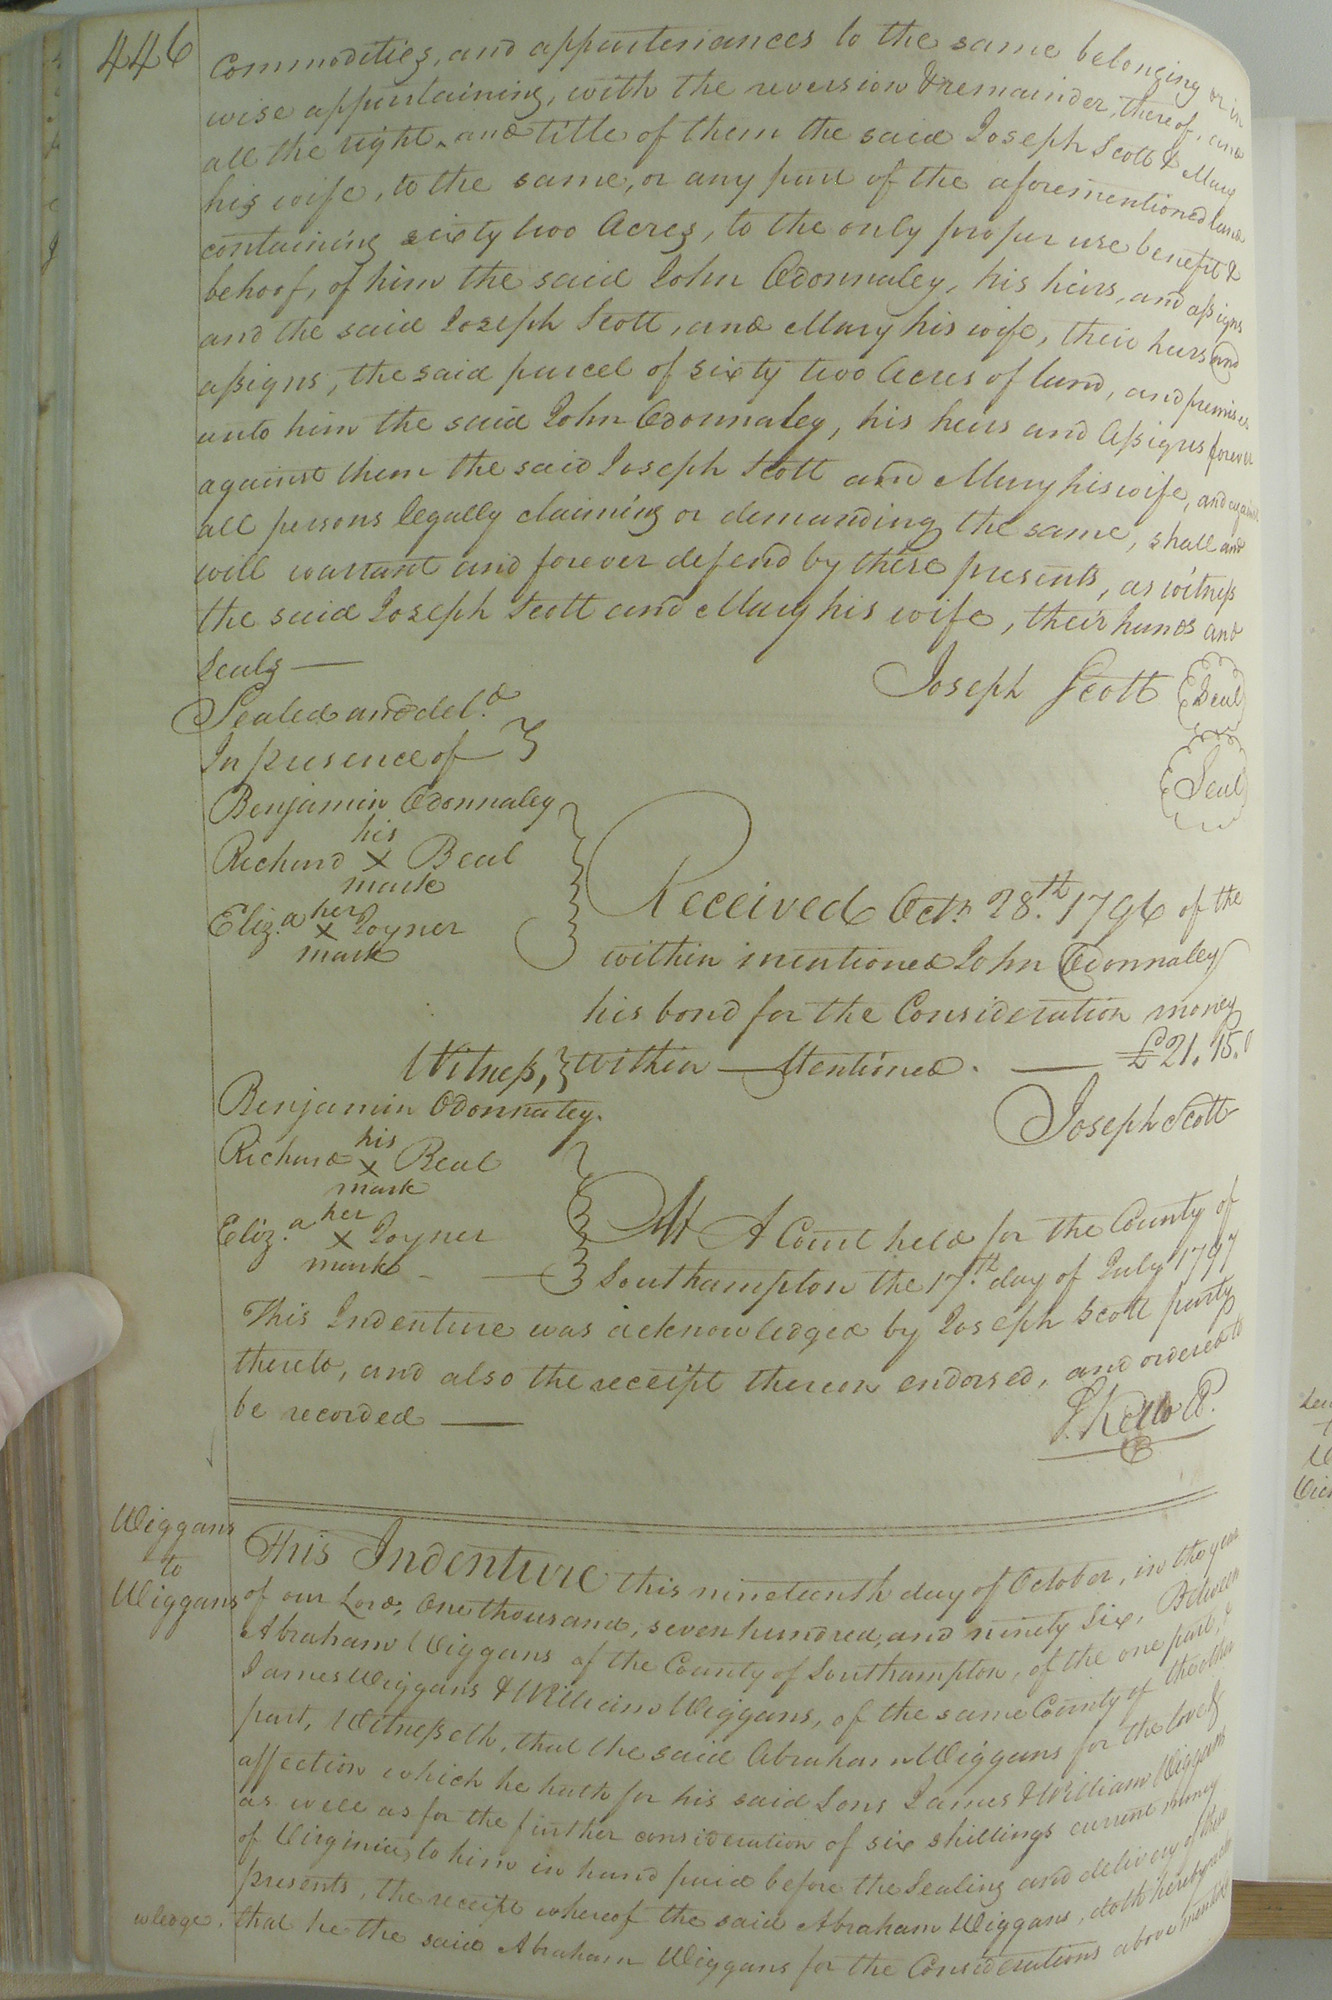 446
Commodities, and appurtenances to the same belonging or in
wise appertaining, with the reversion & remainder, thereof, and
all the right, and title of them the said Joseph Scott & Mary
his wife, to the same, or any part of the aforementioned land
containing sixty two Acres, to the only proper use benefit &
behoof, of him the said John Odonnaley, his heirs, and assigns
and the said Joseph Scott, and Mary his wife, their heirs and
assigns, the said parcel of sixty two Acres of land, and premises
unto him the said John Odonnaley, his heirs and Assigns forever
against them the said Joseph Scott and Mary his wife, and against
all persons legally claiming or demanding the same, shall and
will warrant and forever defend by these presents, as witness
the said Joseph Scott and Mary his wife, their hands and
Seals —
Joseph Scott Seal
Sealed and del.d
In presence of
Seal
Benjamin Odonnaley
his
Richard X Beal
mark
Eliz.a her X Joyner
mark
Received Octr. 28.th 1796 of the
within mentioned John Odonnaley
his bond for the Consideration money
within Mentioned. — £21.15.0
Joseph Scott
Witness,
Benjamin Odonnaley.
his
Richard X Beal
mark
Eliz.a her X Joyner
mark
At A Court held for the County of
Southampton the 17.th day of July 1797
This Indenture was acknowledged by Joseph Scott party
thereto, and also the receipt thereon endorsed, and ordered to
be recorded —
S. Kello
Wiggans
to
Wiggans
This Indenture this nineteenth day of October, in the year
of our Lord, One thousand, seven hundred, and ninety Six, Between
Abraham Wiggans of the County of Southampton, of the one part, &
James Wiggans & William Wiggans, of the same County of the other
part, Witnesseth, that the said Abraham Wiggans for the love &
affection which he hath for his said Sons James & William Wiggans
as well as for the further consideration of six shillings current money
of Virginia, to him in hand paid before the Sealing and delivery of these
presents, the receipt whereof the said Abraham Wiggans, doth hereby
wledge, that he the said Abraham Wiggans for the Considerations above